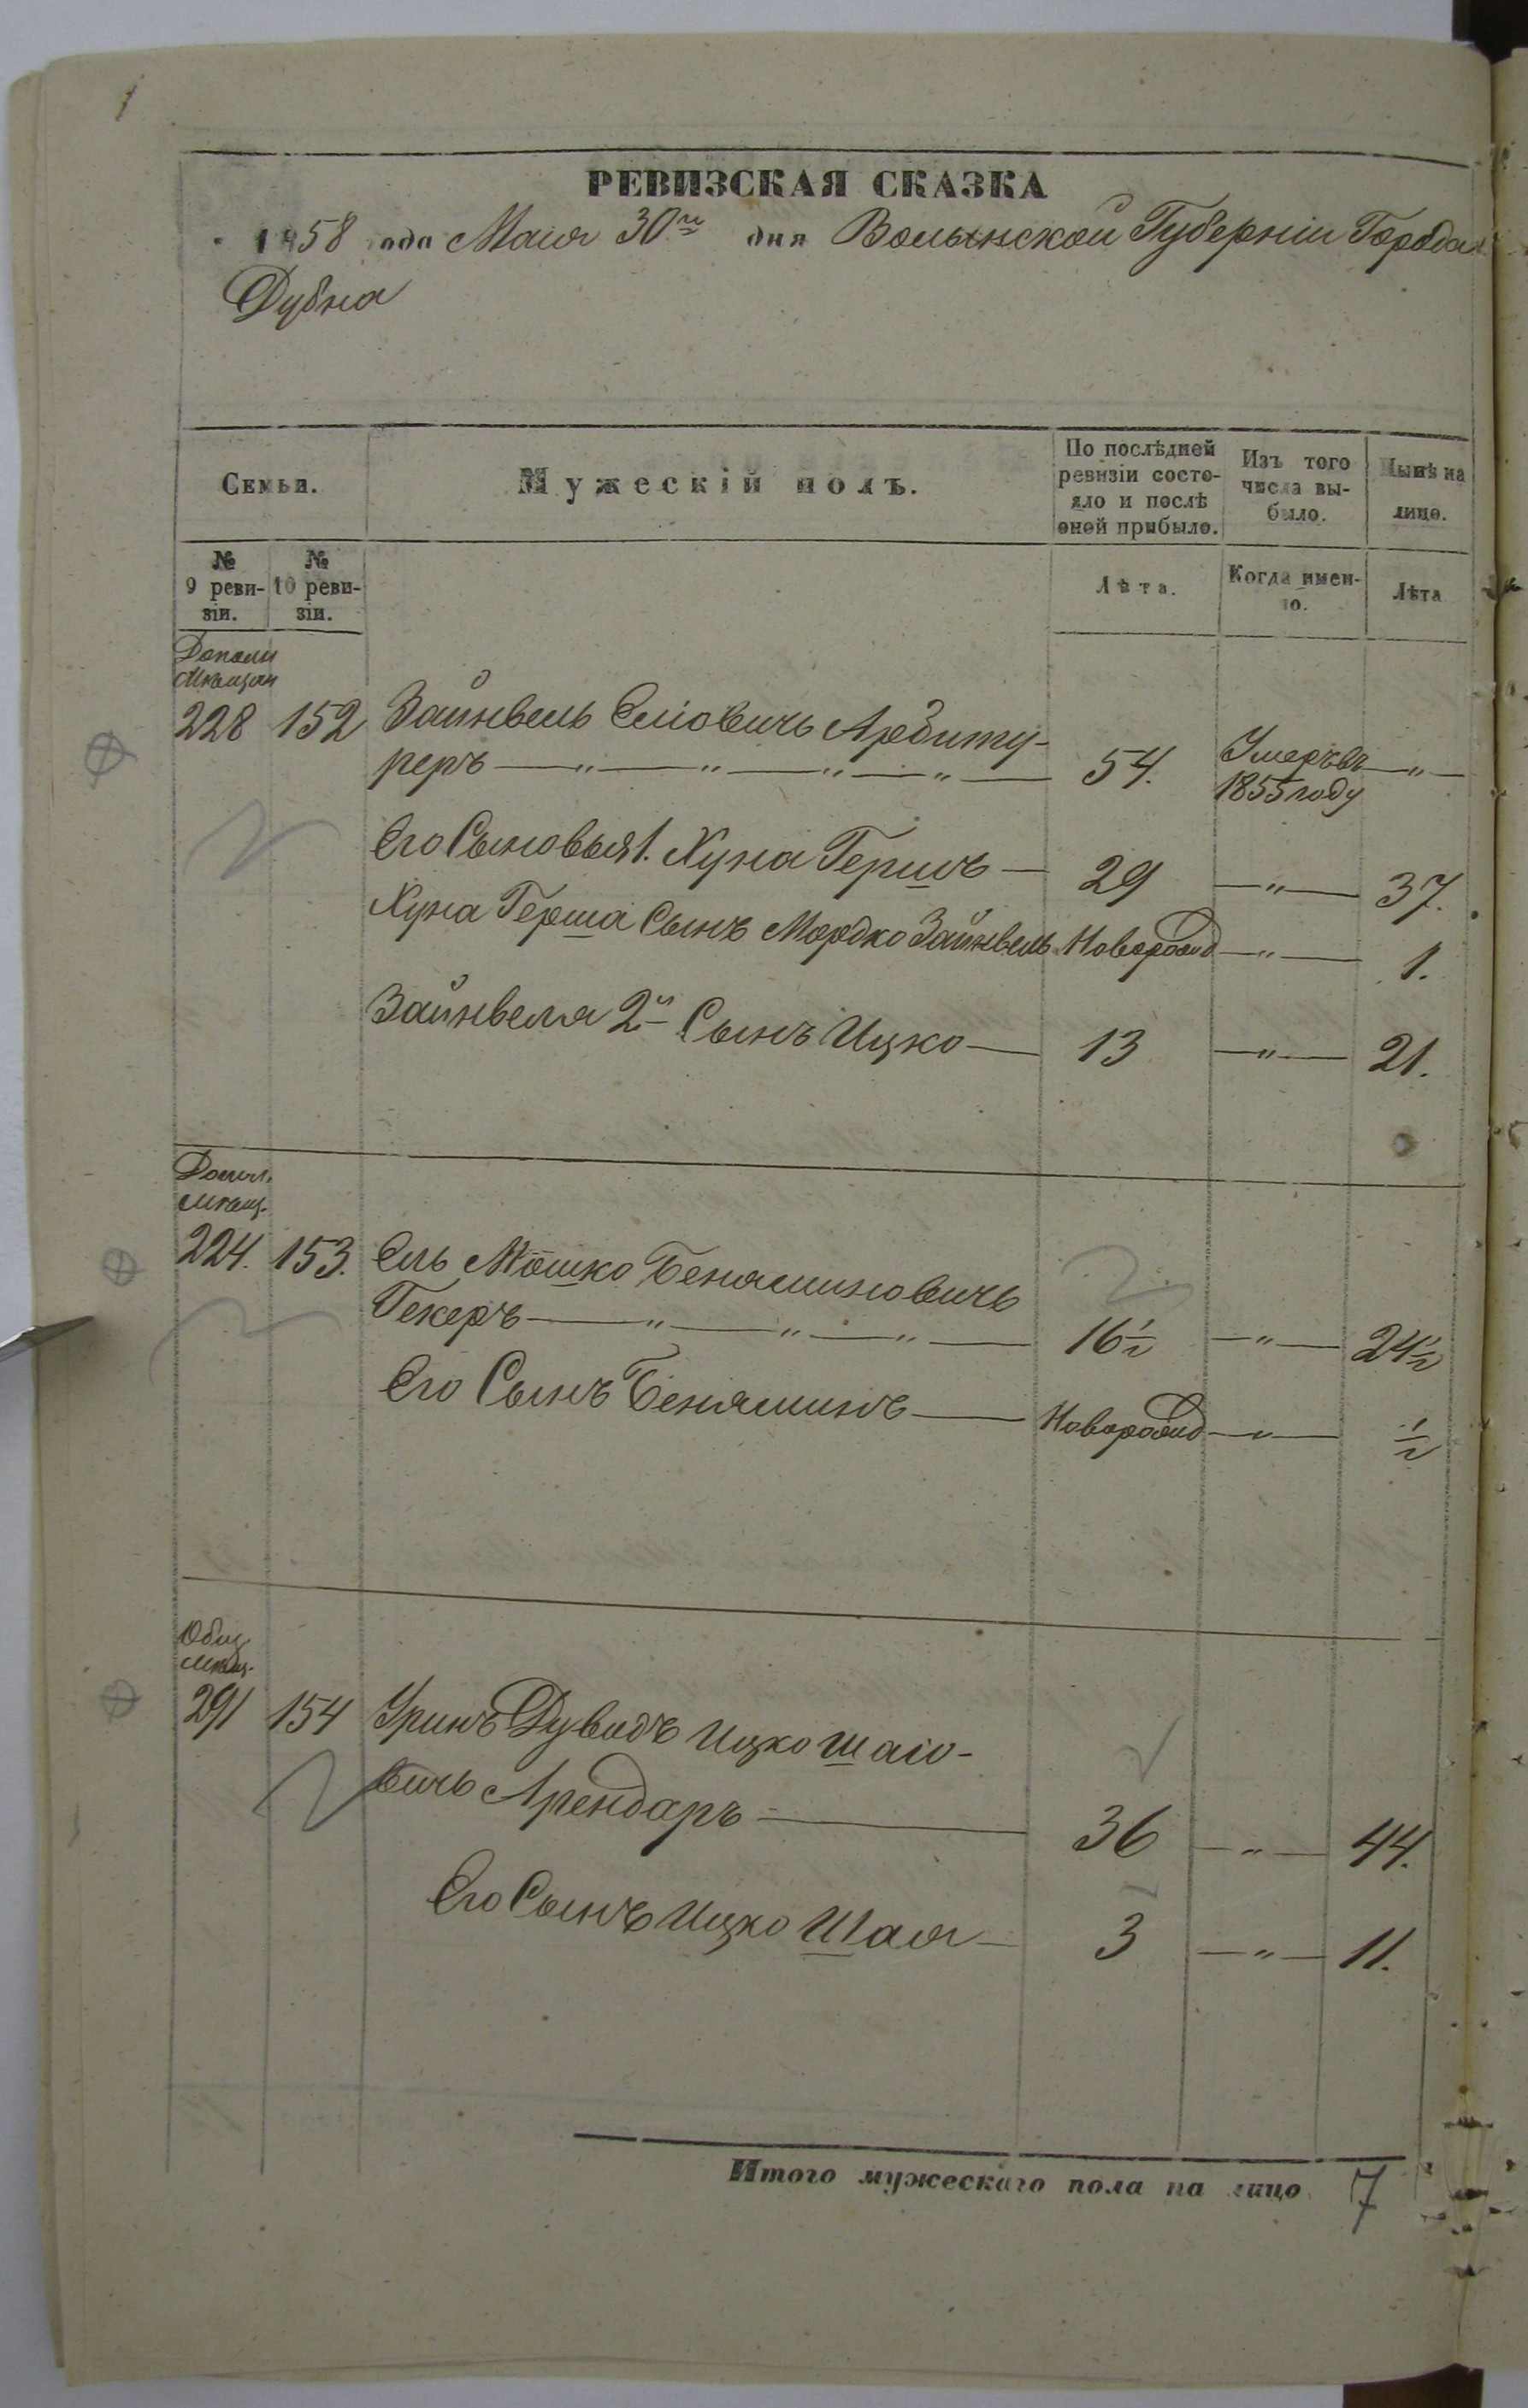 РЕВИЗСКАЯ СКАЗКА
1858 года Маія 30го дня Волынской Губерніи Города
Дубна
Семьи.
Мужескій полъ.
По послѣдней ревизіи состо-яло и послѣ оной прибыло.
Изъ того числа вы-было.
Нынѣ на лицо.
№ 9 реви-зіи.
№ 10 реви-зіи.
Лѣта.
Когда имен-но.
Лѣта
Дополн
Мѣщан
228 152 Зайнвель Еліовичъ Арбиту-
реръ — „ — „ — „ — „ — 54. Умеръ въ 1855 году — „ —
Его Сыновья 1. Хуна Гершъ — 29 — „ — 37.
Хуна Герша Сынъ Мордко Зайнвель Новорожд — „ — 1.
Зайнвеля 2й Сынъ Ицко — 13 — „ — 21.
Допол.
мѣщ.
224. 153. Ель Мошко Беняминовичъ
Гекеръ — „ — „ — „ — 16½ — „ — 24½
Его Сынъ Беняминъ — Новорожд — „ — ½
Общ.
мѣщ.
291 154 Уринъ Дувидъ Ицко Шаіо-
вичъ Арендаръ — 36 — „ — 44.
Его Сынъ Ицко Шая — 3 — „ — 11.
Итого мужескаго пола на лицо 7